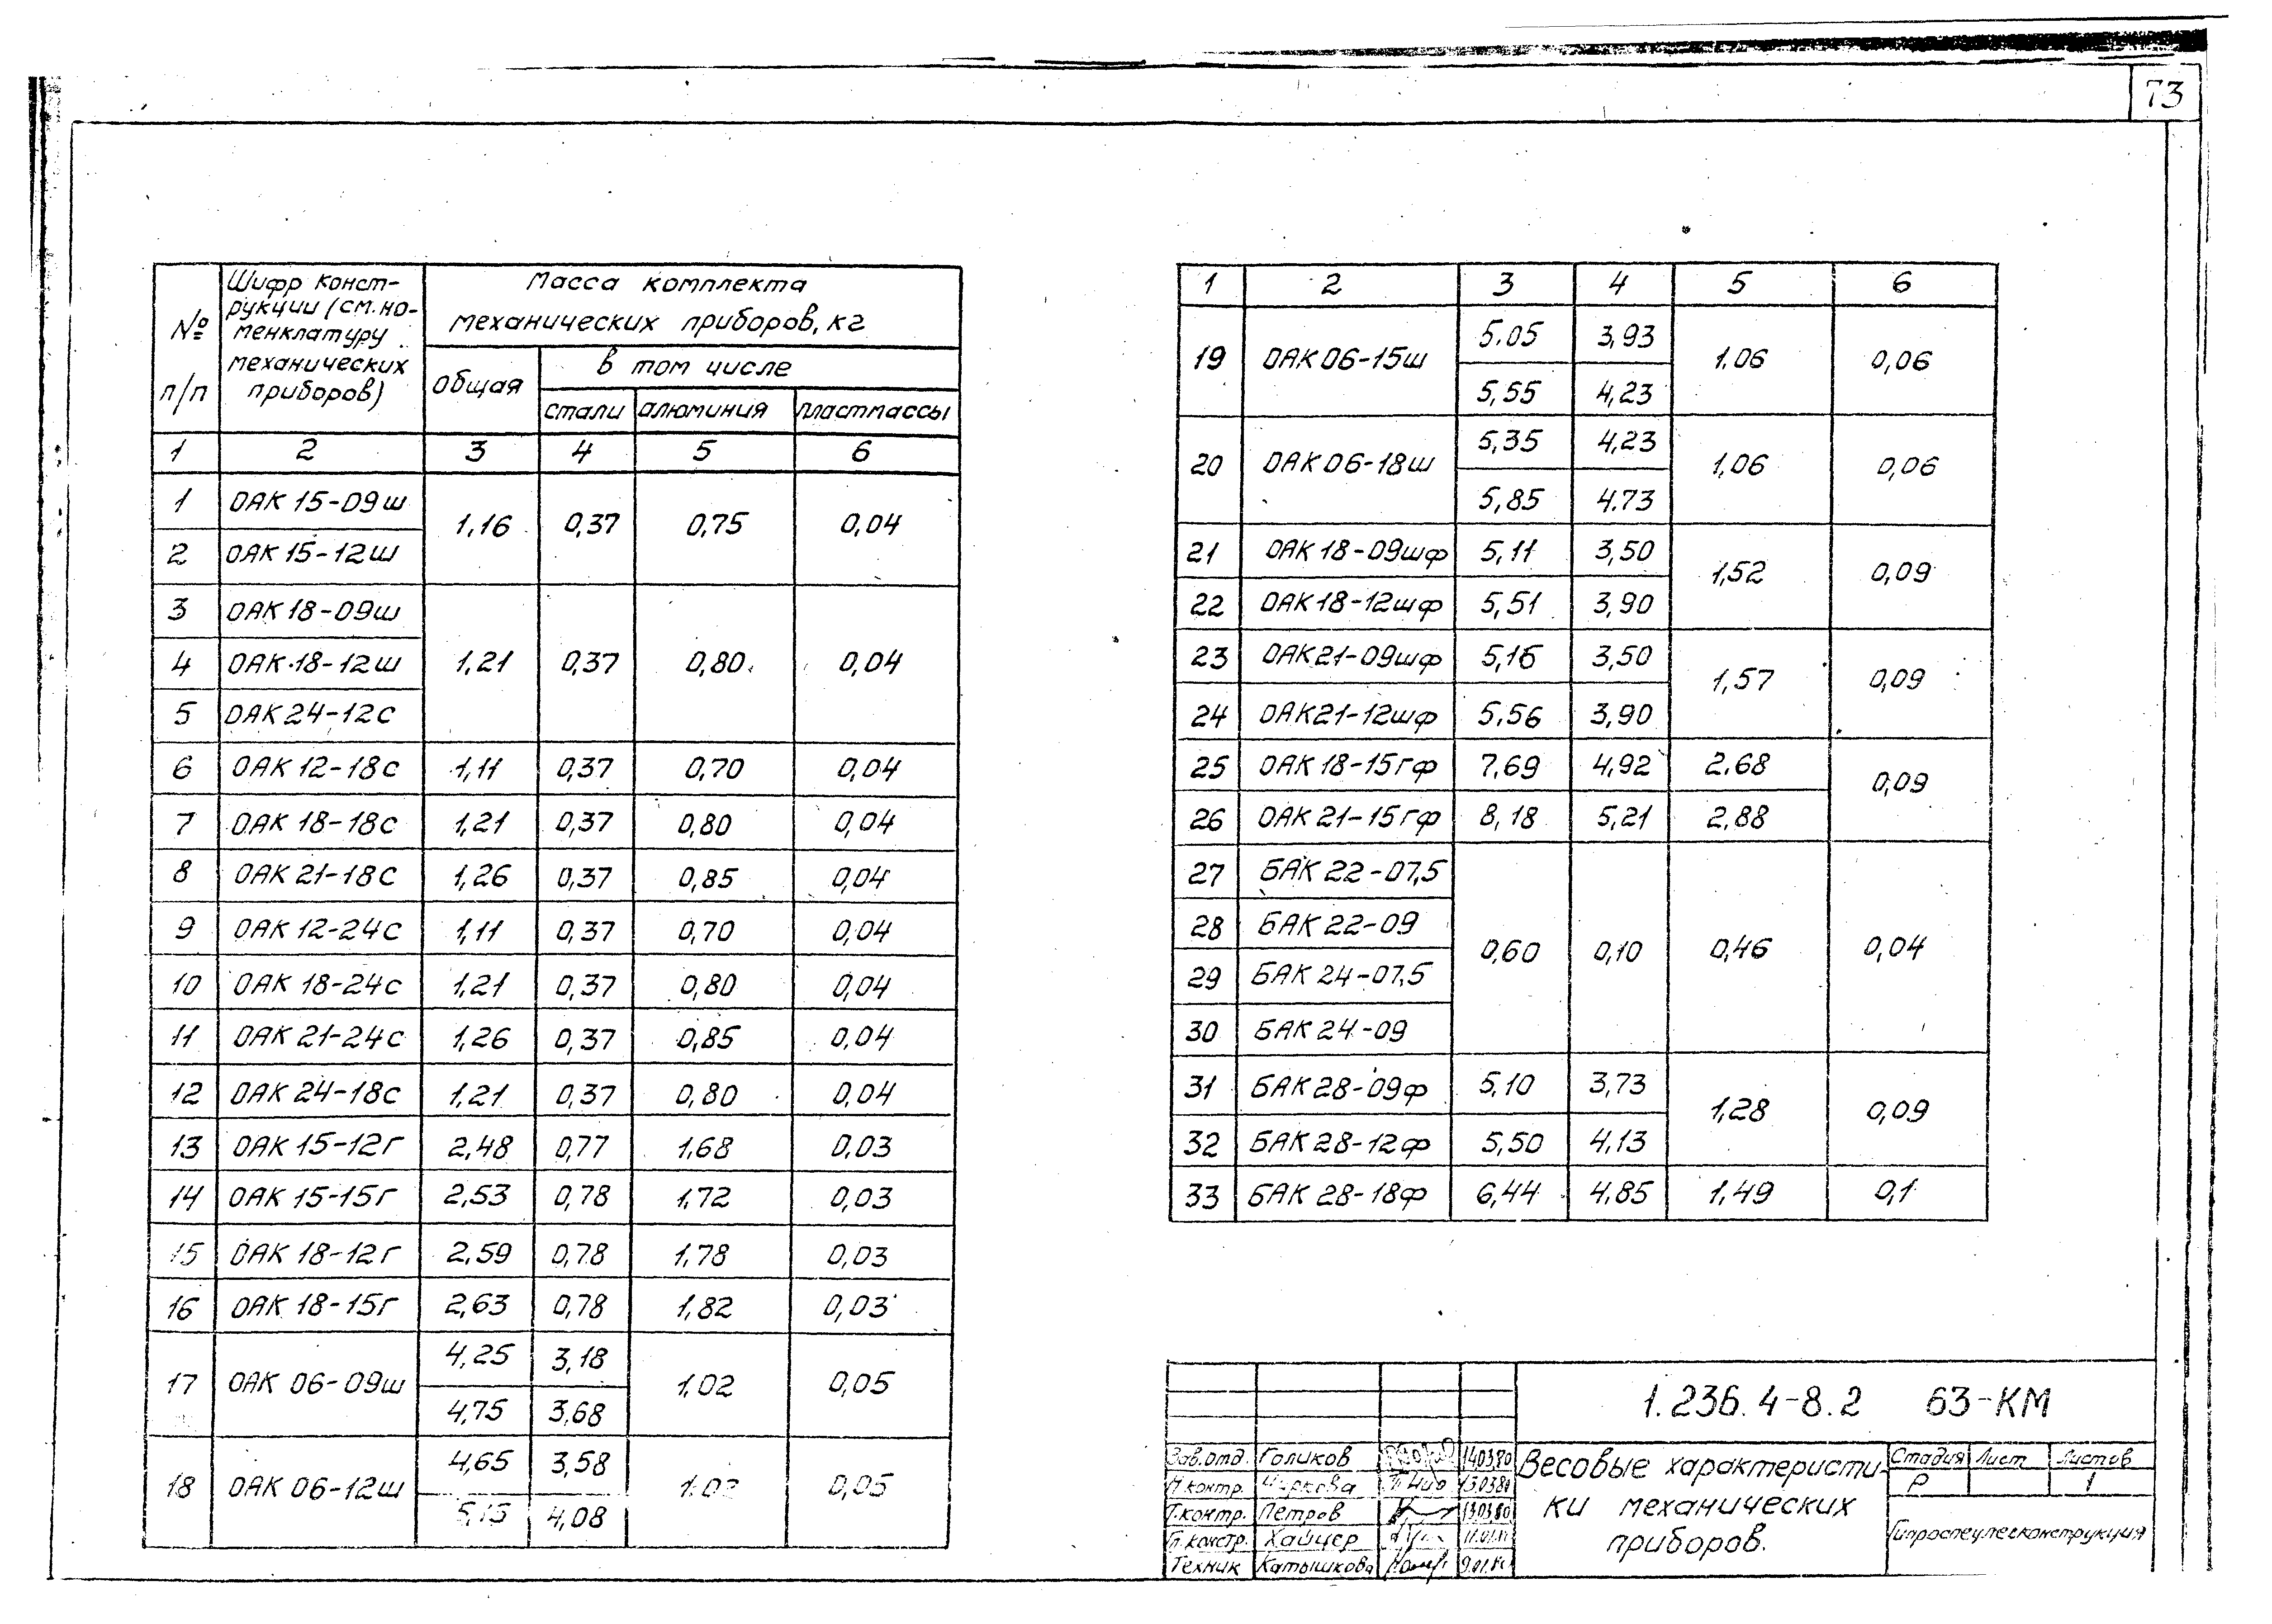 73
№ п/п
Шифр конст-
рукции (см. но-
менклатуру
механических
приборов)
Масса комплекта
механических приборов, кг
общая
в том числе
стали алюминия пластмассы
1 2 3 4 5 6
1 ОАК 15-09ш 1,16 0,37 0,75 0,04
2 ОАК 15-12ш
3 ОАК 18-09ш
4 ОАК 18-12ш 1,21 0,37 0,80 0,04
5 ОАК 24-12с
6 ОАК 12-18с 1,11 0,37 0,70 0,04
7 ОАК 18-18с 1,21 0,37 0,80 0,04
8 ОАК 21-18с 1,26 0,37 0,85 0,04
9 ОАК 12-24с 1,11 0,37 0,70 0,04
10 ОАК 18-24с 1,21 0,37 0,80 0,04
11 ОАК 21-24с 1,26 0,37 0,85 0,04
12 ОАК 24-18с 1,21 0,37 0,80 0,04
13 ОАК 15-12г 2,48 0,77 1,68 0,03
14 ОАК 15-15г 2,53 0,78 1,72 0,03
15 ОАК 18-12г 2,59 0,78 1,78 0,03
16 ОАК 18-15г 2,63 0,78 1,82 0,03
4,25 3,18
17 ОАК 06-09ш 1,02 0,05
4,75 3,68
4,65 3,58
18 ОАК 06-12ш 0,05
4,08
1 2 3 4 5 6
5.05 3,93
19 ОАК 06-15ш 1.06 0,06
5,55 4,23
5,35 4,23
20 ОАК 06-18ш 1,06 0,06
5,85 4.73
21 ОАК 18-09шф 5,11 3,50
1,52 0,09
22 ОАК 18-12шф 5,51 3,90
23 ОАК 21-09шф 5,16 3,50
1,57 0,09
24 ОАК 21-12шф 5,56 3,90
25 ОАК 18-15гф 7,69 4,92 2,68
0,09
26 ОАК 21-15гф 8,18 5,21 2,88
27 БАК 22-07,5
28 БАК 22-09
0,60 0,10 0,46 0,04
29 БАК 24-07,5
30 БАК 24-09
31 БАК 28-09ф 5,10 3,73
1,28 0,09
32 БАК 28-12ф 5,50 4,13
33 БАК 28-18ф 6,44 4,85 1,49 0,1
1.236.4-8.2 63-КМ
Зав.отд. Голиков 140380
Н.контр. 130380
Т.контр. Петров 130380
Гл.констр. Хайцер
Техник Катышкова
Весовые характеристи-
ки механических
приборов.
Стадия Лист Листов
Р 1
Гипроспецлегконструкция